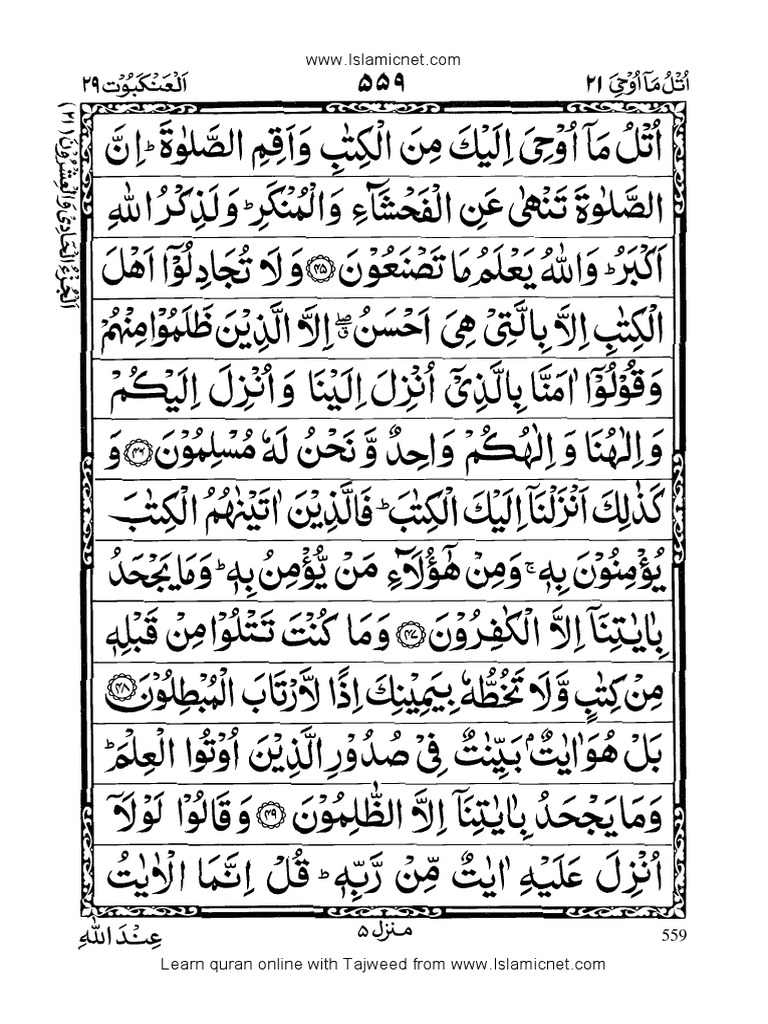 www.Islamicnet.com
اُتْلُ مَآ اُوْحِیَ ۲۱
۵۵۹
اَلْعَنْكَبُوْت ۲۹
اُتْلُ مَآ اُوْحِیَ اِلَیْكَ مِنَ الْكِتٰبِ وَاَقِمِ الصَّلٰوةَ ؕ اِنَّ
الصَّلٰوةَ تَنْهٰی عَنِ الْفَحْشَآءِ وَالْمُنْكَرِ ؕ وَلَذِكْرُ اللّٰهِ
اَكْبَرُ ؕ وَاللّٰهُ یَعْلَمُ مَا تَصْنَعُوْنَ ﴿۴۵﴾ وَلَا تُجَادِلُوْۤا اَهْلَ
الْكِتٰبِ اِلَّا بِالَّتِیْ هِیَ اَحْسَنُ ۖۗ اِلَّا الَّذِیْنَ ظَلَمُوْا مِنْهُمْ
وَقُوْلُوْۤا اٰمَنَّا بِالَّذِیْۤ اُنْزِلَ اِلَیْنَا وَاُنْزِلَ اِلَیْكُمْ
وَاِلٰهُنَا وَاِلٰهُكُمْ وَاحِدٌ وَّنَحْنُ لَهٗ مُسْلِمُوْنَ ﴿۴۶﴾ وَ
كَذٰلِكَ اَنْزَلْنَاۤ اِلَیْكَ الْكِتٰبَ ؕ فَالَّذِیْنَ اٰتَیْنٰهُمُ الْكِتٰبَ
یُؤْمِنُوْنَ بِهٖ ۚ وَمِنْ هٰۤؤُلَآءِ مَنْ یُّؤْمِنُ بِهٖ ؕ وَمَا یَجْحَدُ
بِاٰیٰتِنَاۤ اِلَّا الْكٰفِرُوْنَ ﴿۴۷﴾ وَمَا كُنْتَ تَتْلُوْا مِنْ قَبْلِهٖ
مِنْ كِتٰبٍ وَّلَا تَخُطُّهٗ بِیَمِیْنِكَ اِذًا لَّارْتَابَ الْمُبْطِلُوْنَ ﴿۴۸﴾
بَلْ هُوَ اٰیٰتٌۢ بَیِّنٰتٌ فِیْ صُدُوْرِ الَّذِیْنَ اُوْتُوا الْعِلْمَ ؕ
وَمَا یَجْحَدُ بِاٰیٰتِنَاۤ اِلَّا الظّٰلِمُوْنَ ﴿۴۹﴾ وَقَالُوْا لَوْلَاۤ
اُنْزِلَ عَلَیْهِ اٰیٰتٌ مِّنْ رَّبِّهٖ ؕ قُلْ اِنَّمَا الْاٰیٰتُ
اَلْجُزْءُ الْحَادِیْ وَالْعِشْرُوْنَ (۲۱)
559
منزل ۵
عِنْدَ اللّٰهِ
Learn quran online with Tajweed from www.Islamicnet.com